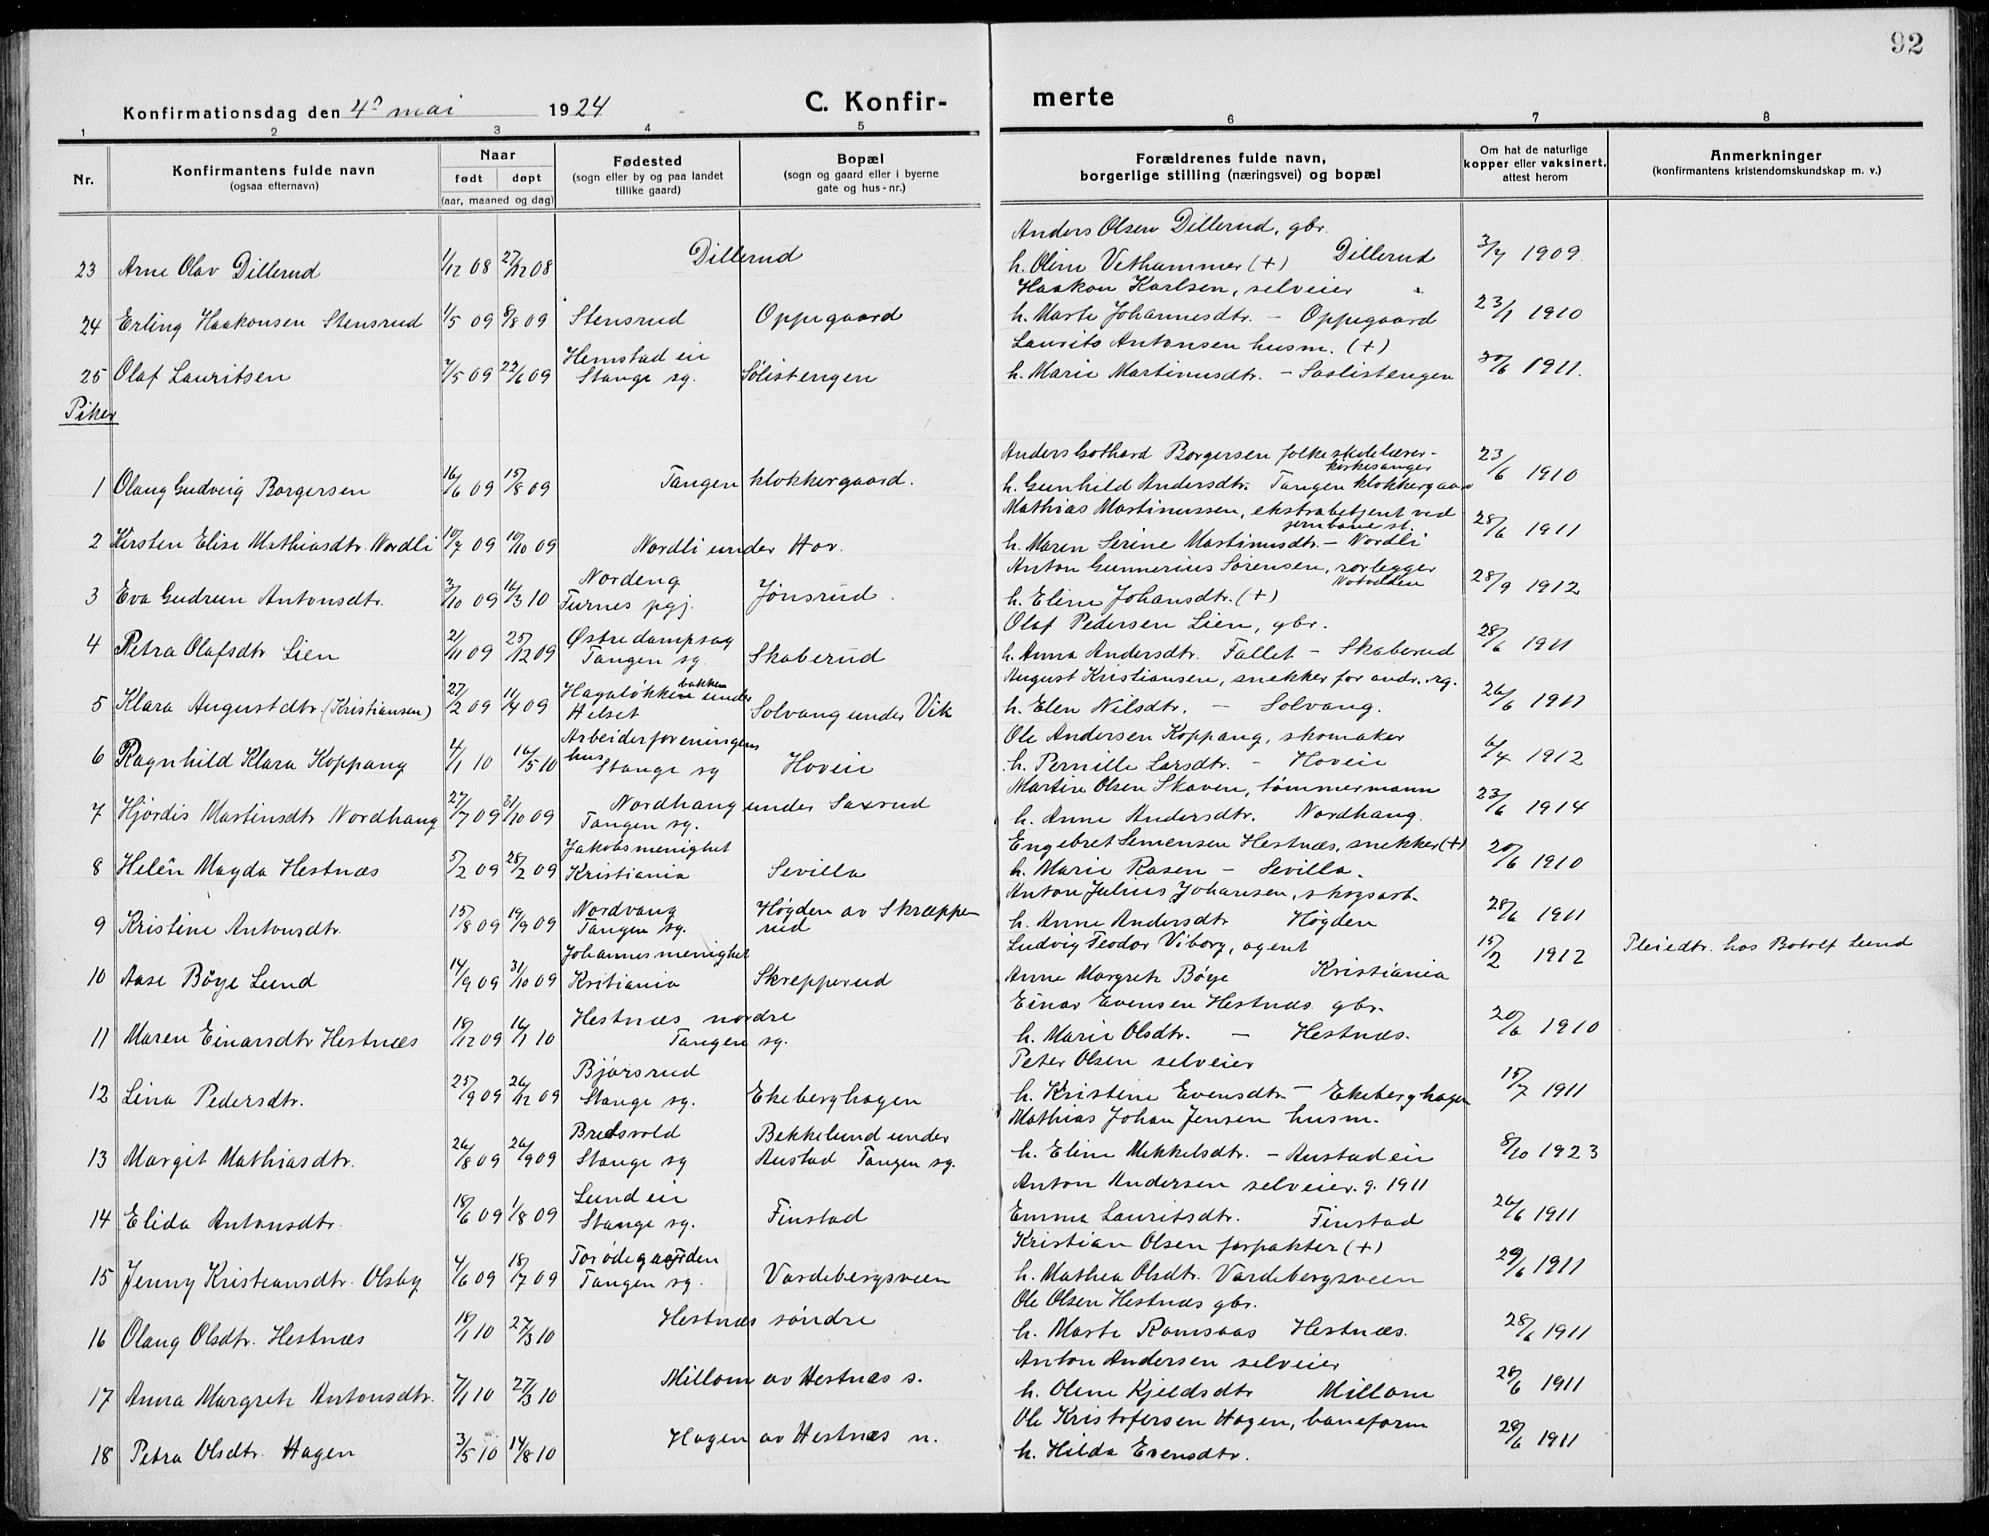 92
Konfirmationsdag den 4de mai 1924 C. Konfir- merte
1 2 3 4 5 6 7 8
Nr. Konfirmantens fulde navn (ogsaa efternavn) Naar født døpt (aar, maaned og dag) Fødested (sogn eller by og paa landet tillike gaard) Bopæl (sogn og gaard eller i byerne gate og hus-nr.) Forældrenes fulde navn, borgerlige stilling (næringsvei) og bopæl Om hat de naturlige kopper eller vaksinert, attest herom Anmerkninger (konfirmantens kristendomskundskap m. v.)
Anders Olsen Dillerud, gbr.
23 Arne Olav Dillerud 1/12 08 27/12 08 Dillerud h. Oline Vethammer (+) Dillerud 3/7 1909
Haakon Karlsen, selveier
24 Erling Haakonsen Stensrud 1/5 09 8/8 09 Stensrud Oppegaard h. Marte Johannesdtr. - Oppegaard 23/1 1910
Hemstad eie Laurits Antonsen husm. (+)
25 Olaf Lauritsen 7/5 09 22/6 09 Stange sg. Sølistengen h. Marie Martinusdtr. - Soolistengen 20/6 1911.
Piker
Anders Gothard Borgersen folkeskolelærer-
kirkesanger
1 Olaug Gudveig Borgersen 16/6 09 15/8 09 Tangen klokkergaard. h. Gunhild Andersdtr. Tangen klokkergaar 23/6 1910
Mathias Martinussen, ekstrabetjent ved
jernbane st.
2 Kirsten Elise Mathiasdtr. Nordli 10/7 09 10/10 09 Nordli under Hov. h. Maren Serine Martinusdtr. - Nordli 28/6 1911
Nordeng Anton Gunnerius Sørensen, rørlegger
Notodden
3 Eva Gudrun Antonsdtr. 3/10 09 16/3 10 Furnes pgj. Jønsrud. h. Eline Johansdtr. (+) 28/9 1912
Østre dampsag Olaf Pedersen Lien, gbr.
4 Petra Olafsdtr. Lien 21/11 09 25/12 09 Tangen sg. Skaberud h. Anna Andersdtr. Fallet - Skaberud 28/6 1911
Hagaløkken under bakken August Kristiansen, snekker for andr. rg.
5 Klara Augustdtr. (Kristiansen) 27/2 09 11/4 09 Hilset Solvang under Vik h. Elen Nilsdtr. - Solvang. 26/6 1911
Arbeiderforeningens Ole Andersen Koppang, skomaker
6 Ragnhild Klara Koppang 4/1 10 16/5 10 hus Stange sg Hoveie h. Pernille Larsdtr. - Hoveie 6/4 1912
Nordhaug under Saxrud Martin Olsen Skaven, tømmermann
7 Hjørdis Martinsdtr Nordhaug 27/7 09 31/10 09 Tangen sg. h. Anne Andersdtr. Nordhaug. 23/6 1914
Jakobsmenighet Engebret Simensen Hestnæs, snekker (+)
8 Helén Magda Hestnæs 5/2 09 28/2 09 Kristiania Sevilla h. Marie Rasen - Sevilla. 20/6 1910
Nordvang Høgden av Skræppe- Anton Julius Johansen, skogsarb.
9 Kristine Antonsdtr. 15/8 09 19/9 09 Tangen sg. rud h. Anne Andersdtr Høgden 28/6 1911
Johannesmenighet Ludvig Teodor Viborg, agent 15/2 1912 Pleiedtr. hos Botolf Lund
10 Aase Bøye Lund 14/9 09 31/10 09 Kritiania Skrepperud Anne Margrete Bøye Kristiania
Hestnæs nordre Einar Evensen Hestnæs gbr.
11 Maren Einarsdtr Hestnæs 18/12 09 16/1 10 Tangen sg. h. Marie Olsdtr. - Hestnæs. 20/6 1910
Bjørsrud Peter Olsen selveier
12 Lina Pedersdtr. 25/9 09 26/12 09 Stange sg. Ekeberghagen h. Kristine Evensdtr. - Ekeberghagen 15/7 1911
Bredsvold Bekkelund under Mathias Johan Jensen husm.
13 Margit Mathiasdtr. 26/8 09 26/9 09 Stange sg Austad Tangen sg. h. Eline Mikkelsdtr. - Austadeie 8/10 1923
Lund eie Anton Andersen selveier. g. 1911
14 Elida Antonsdtr. 18/6 09 1/8 09 Stange sg. Finstad Emma Lauritsdtr. Finstad 26/6 1911
Torødegaarden Kristian Olsen forpakter (+)
15 Jenny Kristiansdtr. Olsby 4/6 09 18/7 09 Tangen sg. Vardebergsveen h. Mathea Olsdtr. Vardebergsveen 29/6 1911
Hestnæs søndre Ole Olsen Hestnæs gbr.
16 Olaug Olsdtr. Hestnæs 18/1 10 27/3 10 h. Marte Romsaas Hestnæs. 28/6 1911
Millom av Hestnæs s. Anton Andersen selveier
17 Anna Margrete Antonsdtr. 7/1 10 27/3 10 h. Oline Kjeldsdtr Millom 28/6 1911
Hagen av Hestnæs n. Ole Kristofersen Hagen, baneform
18 Petra Olsdtr. Hagen 3/5 10 14/8 10 h. Hilda Evensdtr. 28/6 1911